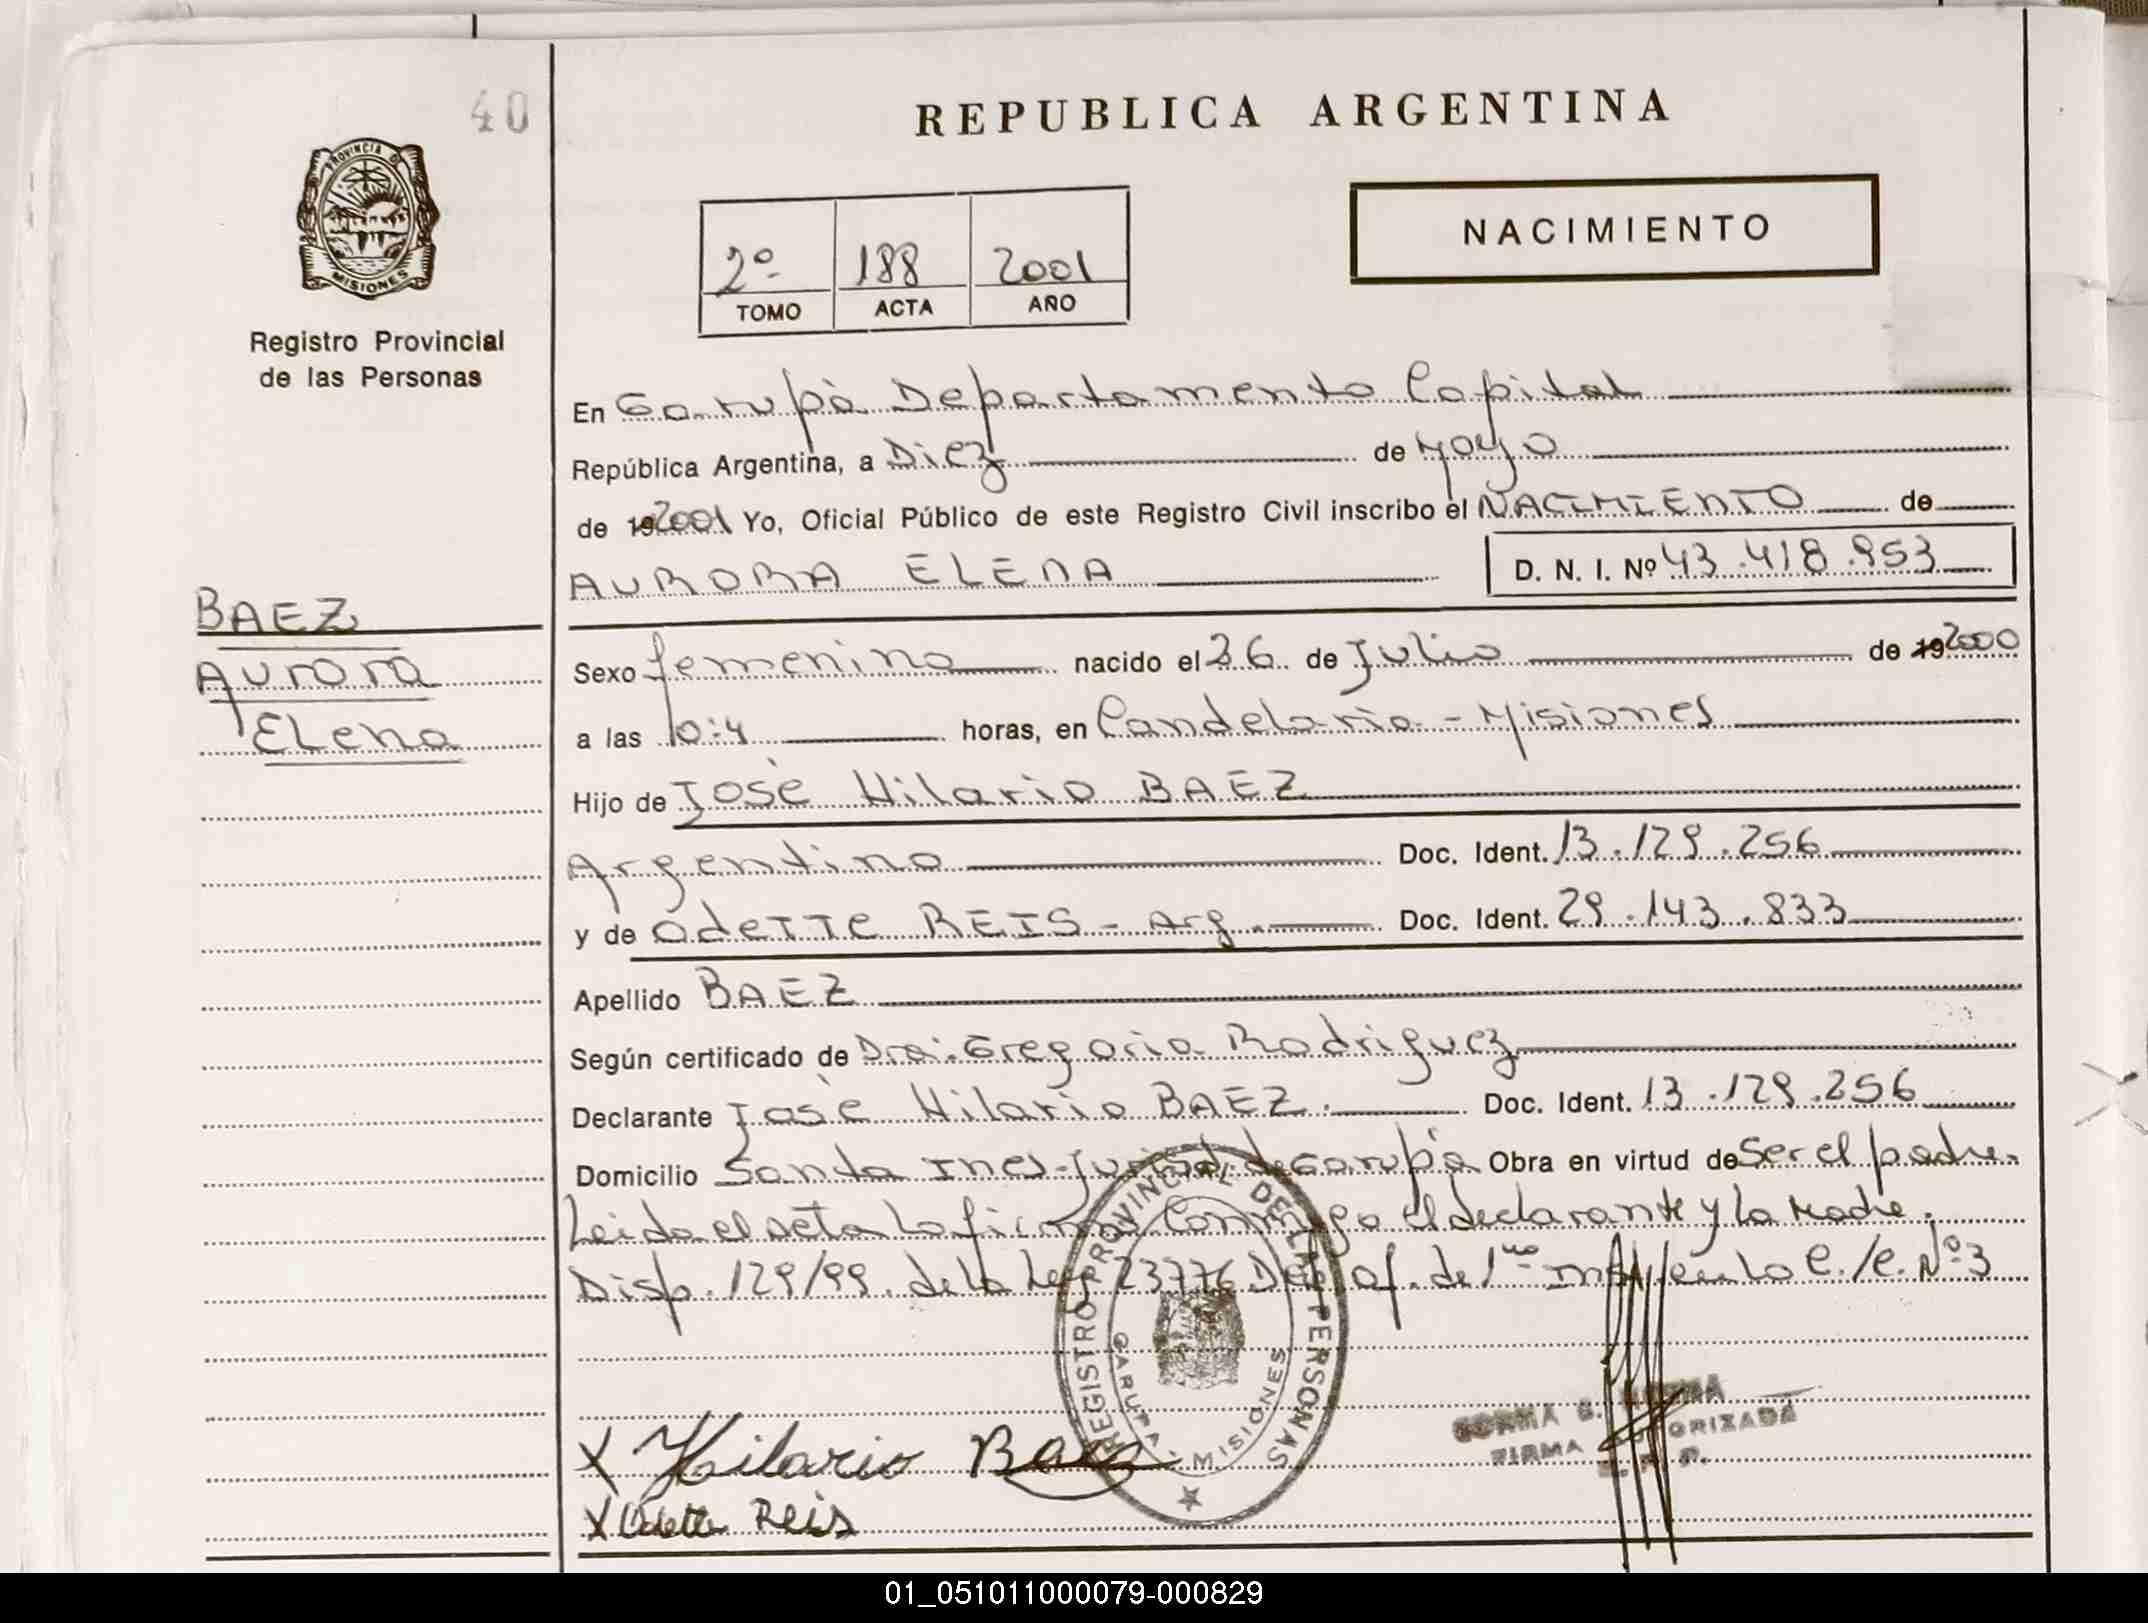 40
REPUBLICA ARGENTINA
PROVINCIA DE
MISIONES
Registro Provincial
de las Personas
NACIMIENTO
2º 188 2001
TOMO ACTA AÑO
En Garupà Departamento Capital
República Argentina, a Diez de Mayo
de 192001 Yo, Oficial Público de este Registro Civil inscribo el NACIMIENTO de
AURORA ELENA D. N. I. Nº 43.418.953
BAEZ
Aurora
Elena
Sexo femenino nacido el 26 de Julio de 192000
a las 10:4 horas, en Candelaria - Misiones
Hijo de Josè Hilario BAEZ
Argentino Doc. Ident. 13.129.256
y de Odette REIS - Arg. Doc. Ident. 29.143.833
Apellido BAEZ
Según certificado de Dra: Gregoria Rodriguez
Declarante Josè Hilario BAEZ. Doc. Ident. 13.129.256
Domicilio Santa Ines-Jurisd. de Garupà Obra en virtud de Ser el padre.
Leida el acta la firma Conmigo el declarante y la Madre.
Disp. 129/99. de la Ley 23776 de 1ro C./C. Nº 3
REGISTRO PROVINCIAL DE LAS PERSONAS
GARUPA - MISIONES
NORMA
FIRMA AUTORIZADA
X Hilario Baez
X Odette Reis
01_051011000079-000829